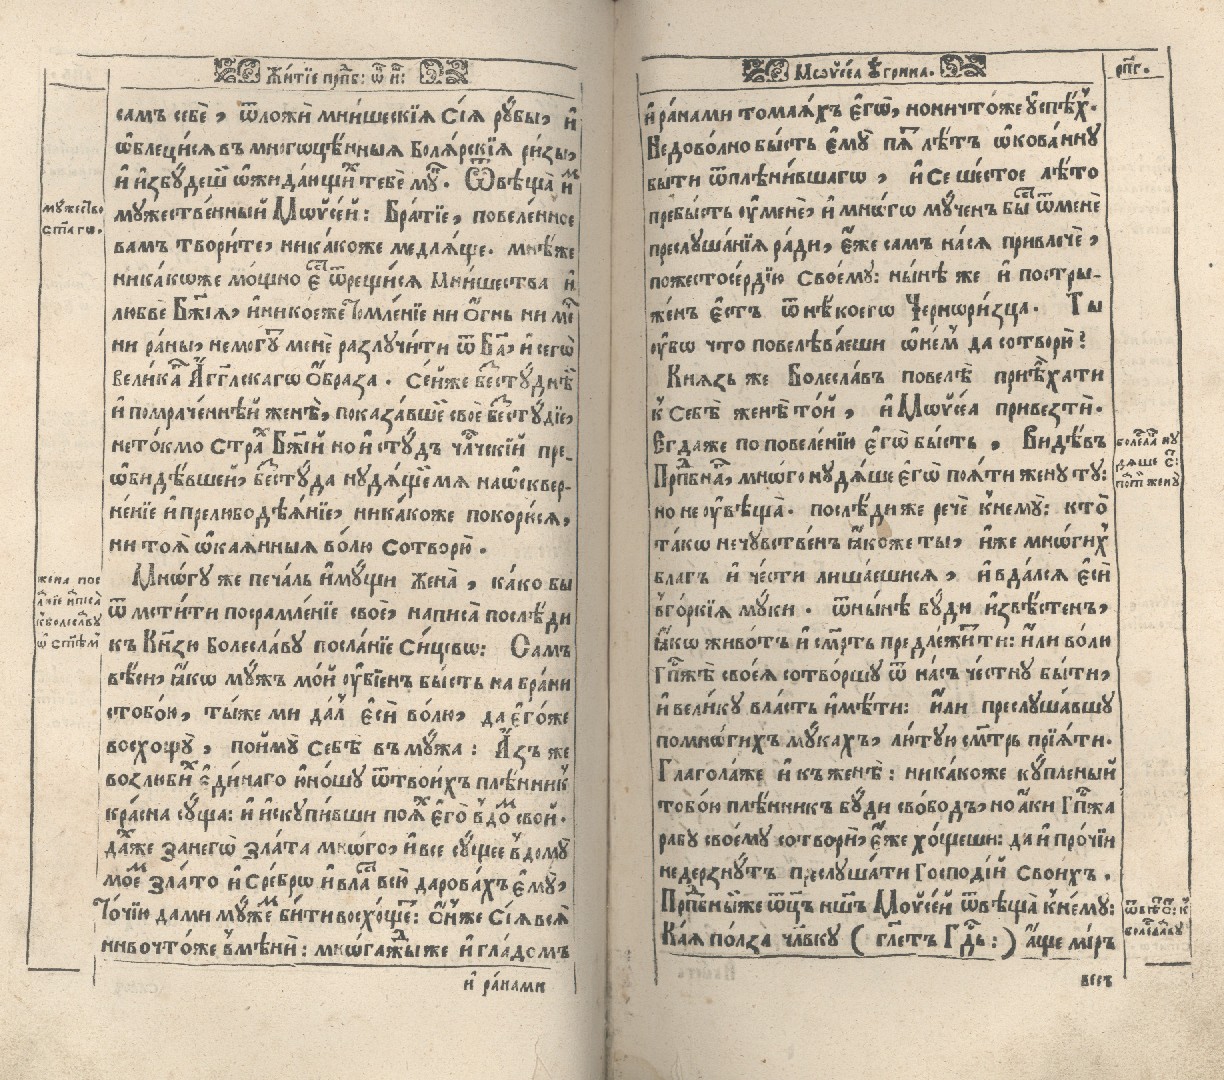 Житїе прпⷣб: ѿ н҃:
самъ себѐ, ѿложѝ мнишескїѧ сїѧ рꙋбы, и҆
ѡ҆блецисѧ въ многоцѣнныѧ болѧрскїѧ ризы,
и҆ и҆збꙋдеши ѡ҆жидающиⷯ тебе мꙋⷦ. Ѿвѣща и҆мⷨ
мꙋжественный Мѡѷсей: Братїе, повеленное
вамъ творите, никакоже медлѧще. мнѣ же
никакѡже мощно єⷭ҇ ѿрещисѧ Мнишества и҆
любве Бж҃їѧ, и҆ никоеже томленїе ни Ѻгнь ни меⷱ
ни раны, не могꙋⷮ мене разлꙋчити ѿ Бг҃а, и҆ сегѡ
великаⷢ Агг҃лскагѡ Ѻбраза. Сей же безстꙋднѣ
и҆ помраченнѣй женѣ, показавше свое безстꙋдїе,
нетокмо страⷯ Бж҃їй но и҆ стꙋдъ чл҃ческїй пре-
ѡ҆бидѣвшей, безстꙋда нꙋдѧще мѧ на ѡ҆сквер-
ненїе и҆ прелюбодѣѧнїе, никакоже покорюсѧ,
ни тоѧ ѡ҆каѧнныѧ волю сотворю.
Многꙋ же печаль и҆мꙋщи жена, како бы
ѿмстити посрамленїе своѐ, написа послѣди
къ Кн҃зю Болеславꙋ посланїе сицево: Самъ
вѣси, ꙗ҆кѡ мꙋжъ мой ᲂу҆бїенъ бысть на брани
с тобою, ты же ми даⷧ є҆сѝ волю, да є҆гоже
восхощꙋ, поймꙋ себѣ въ мꙋжа: Азъ же
возлюбиⷯ є҆динаго ю҆ношꙋ ѿ твоихъ плѣнникъ
красна сꙋща: и҆ и҆скꙋпивши поѧⷯ є҆го в домⷨ свой.
даⷯже за негѡ злата много, и҆ все сꙋщее в домꙋ
моеⷨ злато и҆ сребро и҆ власть всю даровахъ є҆мꙋ,
точїю да ми мꙋжеⷨ быти восхощеⷮ: Ѻн же сїѧ всѧ
ни во чтоже вмѣни: многажды же и҆ гладомъ
и҆ ранами
мꙋжество
ст҃агѡ.
жена пос
к болеславꙋ
Мѡѷсеа Оугрина.
рп҃г.
и҆ ранами томѧхъ є҆гѡ, но ничтоже ᲂу҆спѣⷯ.
Недоволно бысть є҆мꙋ пѧⷮ лѣтъ ѡ҆кованнꙋ
быти ѿ плѣнившагѡ, и҆ се шестое лѣто
пребысть ᲂу҆ мене, и҆ много мꙋченъ быⷭ҇ ѿ мене
преслꙋшанїѧ ради, є҆же самъ на сѧ привлече,
по жестосердїю своемꙋ: нынѣ же и҆ постры-
женъ є҆стъ ѿ нѣкоегѡ Черноризца. Ты
ᲂу҆бѡ что повелѣваеши ѡ҆ неⷨ да сотворю?
Князь же Болеславъ повелѣ приѣхати
к себѣ женѣ той, и҆ Мѡѷсеа привезти.
Егда же по повеленїю є҆гѡ бысть, Видѣвъ
Прпⷣбнаⷢ, много нꙋдѧше є҆гѡ поѧти женꙋ тꙋ:
но не ᲂу҆вѣща. послѣди же рече к немꙋ: кто
такѡ нечꙋвственъ ꙗ҆коже ты, и҆же многихъ
благъ и҆ чести лишаешисѧ, и҆ вдалсѧ є҆сѝ
в горкїѧ мꙋки. ѿнынѣ бꙋди и҆звѣстенъ,
ꙗ҆кѡ животъ и҆ смⷬ҇ть предлежиⷮ ти: и҆ли волю
Гпⷭ҇жѣ своеѧ сотворшꙋ ѿ насъ честнꙋ быти,
и҆ великꙋ власть и҆мѣти: и҆ли преслꙋшавшꙋ
по многихъ мꙋкахъ, лютꙋю смⷬ҇ть прїѧти.
Глагола же и҆ къ женѣ: никакоже кꙋпленый
тобою плѣнникъ бꙋди свободъ, но аки Гпⷭ҇жа
рабꙋ своемꙋ сотвори, є҆же хощеши: да и҆ прочїи
не дерзнꙋтъ преслꙋшати Господїй своихъ.
Прпⷣбный же ѿц҃ъ нш҃ъ Моѷсей ѿвѣща к немꙋ:
Каѧ полза чл҃вкꙋ ( гл҃етъ Гдⷭ҇ь: ) аще миръ
весъ
болеслав нꙋ
дѧше ст҃:
поѧти женꙋ
ѿвѣⷮ ст҃: к
болеславꙋ